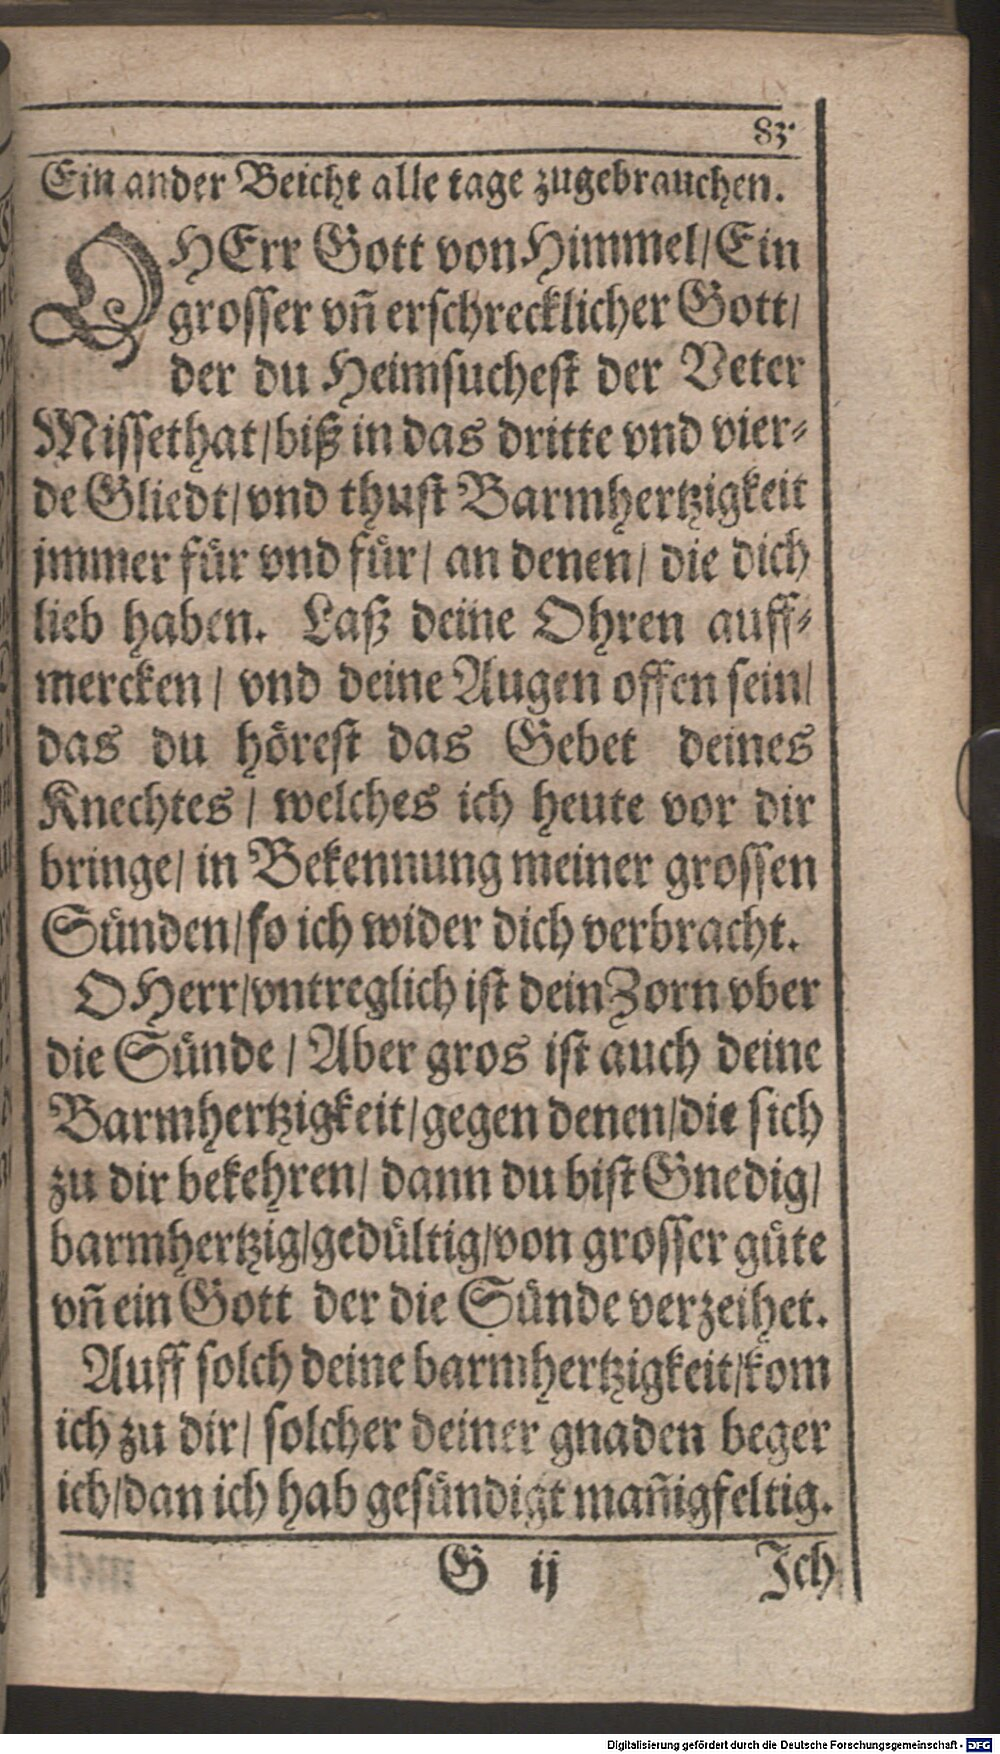 83.
Ein ander Beicht alle tage zugebrauchen.
O HErr Gott von Himmel/ Ein
grosser vñ erschrecklicher Gott/
der du Heimsuchest der Veter
Missethat/ biß in das dritte vnd vier-
de Gliedt/ vnd thust Barmhertzigkeit
jmmer für vnd für/ an denen/ die dich
lieb haben. Laß deine Ohren auff-
mercken/ vnd deine Augen offen sein/
das du hörest das Gebet deines
Knechtes/ welches ich heute vor dir
bringe/ in Bekennung meiner grossen
Sünden/ so ich wider dich verbracht.
O Herr/ vntreglich ist dein Zorn vber
die Sünde/ Aber gros ist auch deine
Barmhertzigkeit/ gegen denen/ die sich
zu dir bekehren/ dann du bist Gnedig/
barmhertzig/ gedültig/ von grosser güte
vñ ein Gott der die Sünde verzeihet.
Auff solch deine barmhertzigkeit/ kom
ich zu dir/ solcher deiner gnaden beger
ich/ dan ich hab gesündigt mañigfeltig.
G ij Jch
Digitalisierung gefördert durch die Deutsche Forschungsgemeinschaft - DFG